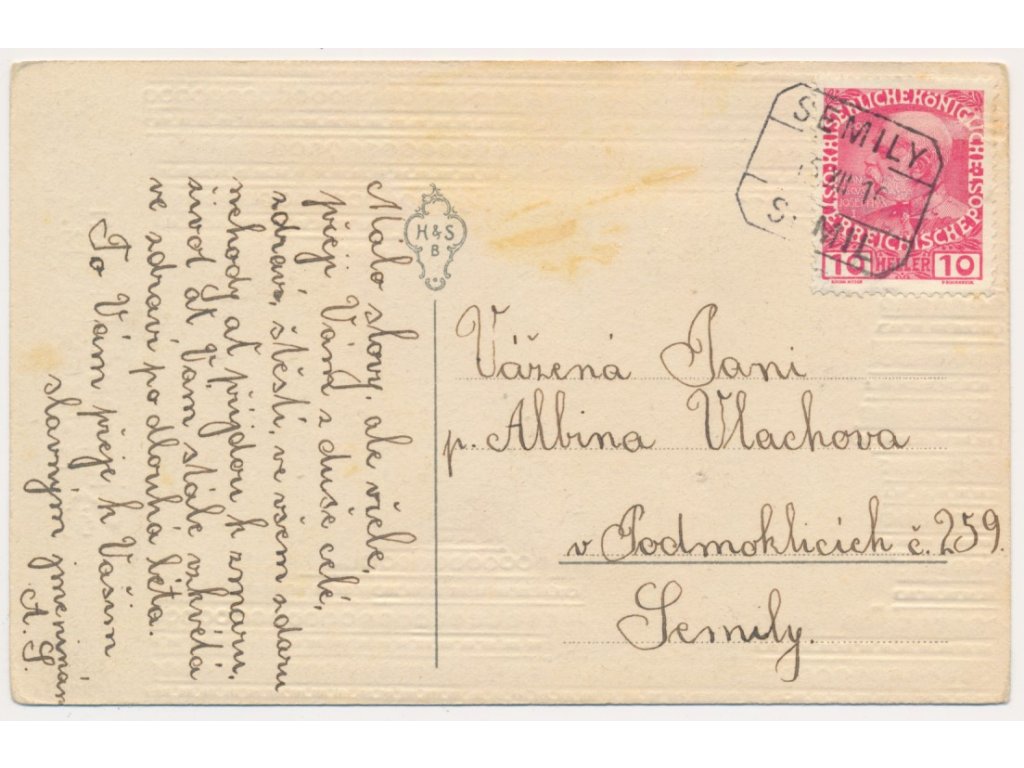 Málo slovy, ale vřele,
přeji Vám z duše celé,
zdraví, štěstí, ve všem zdaru
nehody ať přijdou k zmaru,
život ať Vám stále vzkvétá
ve zdraví po dlouhá léta.
To Vám přeje k Vašim
slavným jmeninám
A. S.
H & S
B
SEMILY
XII
KAISERLICHE KÖNIGLICHE
ÖSTERREICHISCHE POST
10 HELLER 10
Vážená Paní
p. Albina Vlachova
v Podmoklicích č. 259.
Semily.